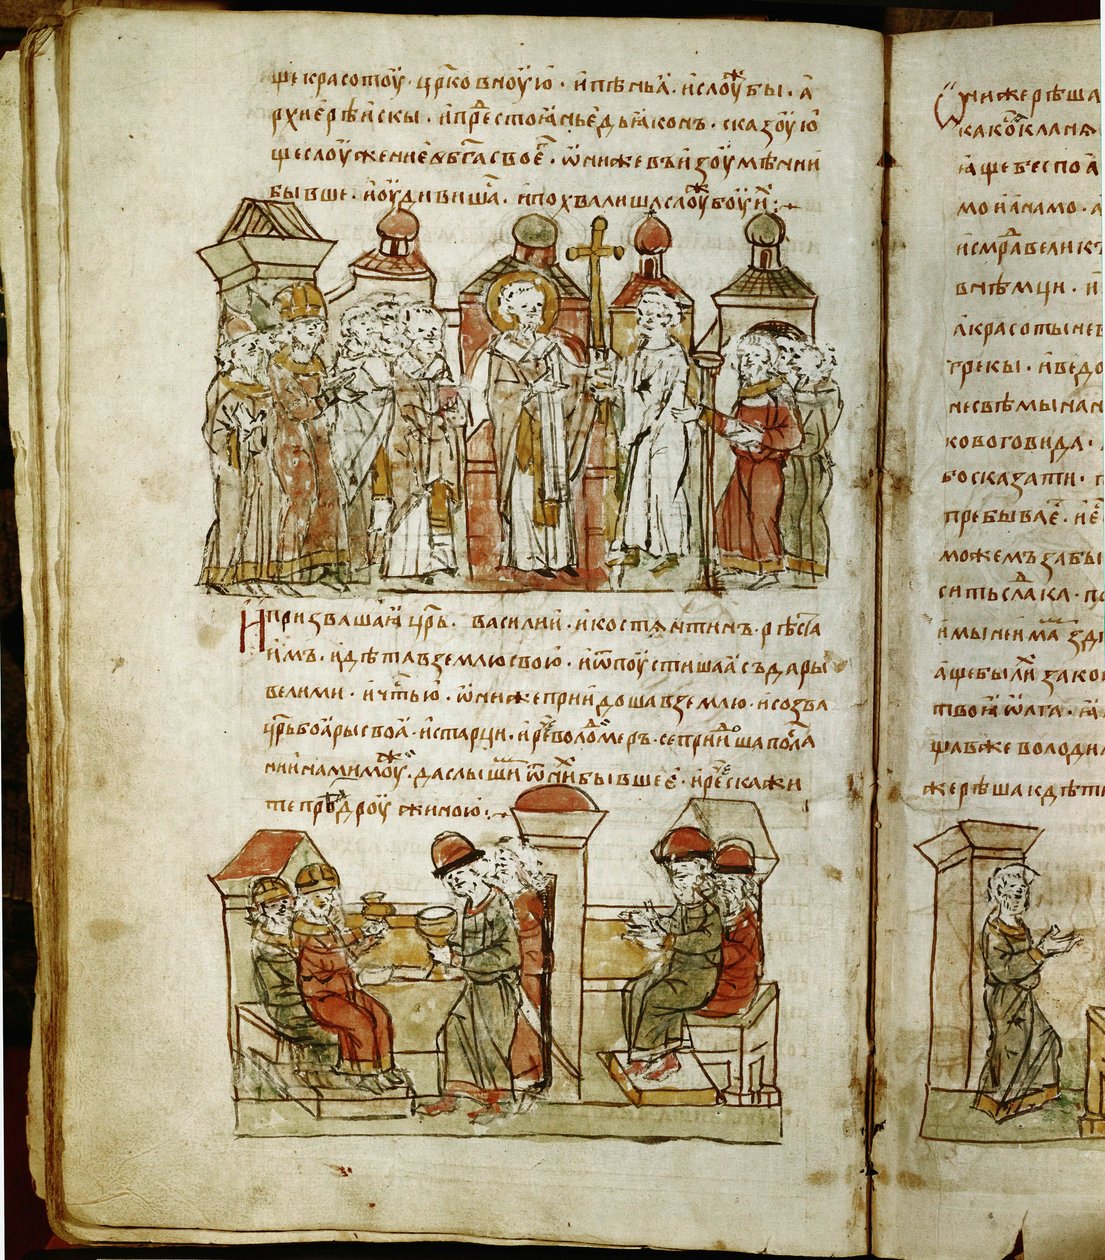 ще красотоу̑. цр҃ковноую. и пѣньꙗ. и слоуⷤбы. а
рхиерѣискы. и прⷣестоꙗньедьꙗконъ. сказоую
ще слоужение б҃га своеⷢ. ѡниже въ изоумѣнии
бывше. и оудивишаⷭ. и похвалиша слоуⷤбоу иⷯ:
И призваша ꙗ цр҃ь. василии. и костянтинъ. рѣста
имъ. идѣта в землю свою. и ѿпоустиша ꙗ съ дары
велими. и чⷭтью. ѡниже приидоша в землю. и созва
цр҃ь боꙗры своꙗ. и старци. и реⷱ володимеръ. се приидоша посла
нии нами моуⷤ. да слышиⷨ ѿ ниⷯ бывшеє. и реⷱ скажи
те преⷣ дроужиною:
Ѡниже рѣша
како кланя
аще бес поа
смрад велик
в нѣмци. и
а красоты не
греки. и ведо
не свѣмы на н
ковог вида.
бо сказати.
пребываеⷮ
можемъ забы
сить сладка. по
и мы не имаⷨ зд
аще бы лиⷯ зако
твоꙗ
щавже володи
же рѣша кдѣ ти